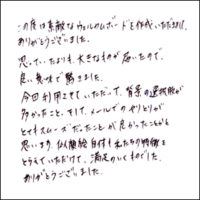 この度は素敵なウェルカムボードを作成いただきまして、
ありがとうございました。
思っていたよりも大きなものが届いたので、
良い意味で驚きました。
今回利用させていただいて、背景の選択肢が
多かったこと、そして、メールでのやりとりが
とてもスムーズだったことが良かったことかなと
思います。似顔絵自体も私たちの特徴を
とらえていただけて、満足のいくものでした。
ありがとうございました。